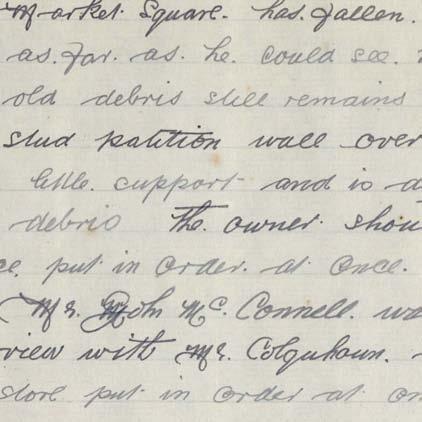 Market Square. has. fallen.
as. far. as. he. could see.
old debris still remains
stud patition wall over
little. support and is
debris The owner shou
ce. put in order. at once.
Mr. John McConnell. wa
view with Mr. Colquhoun.
store put in order at on